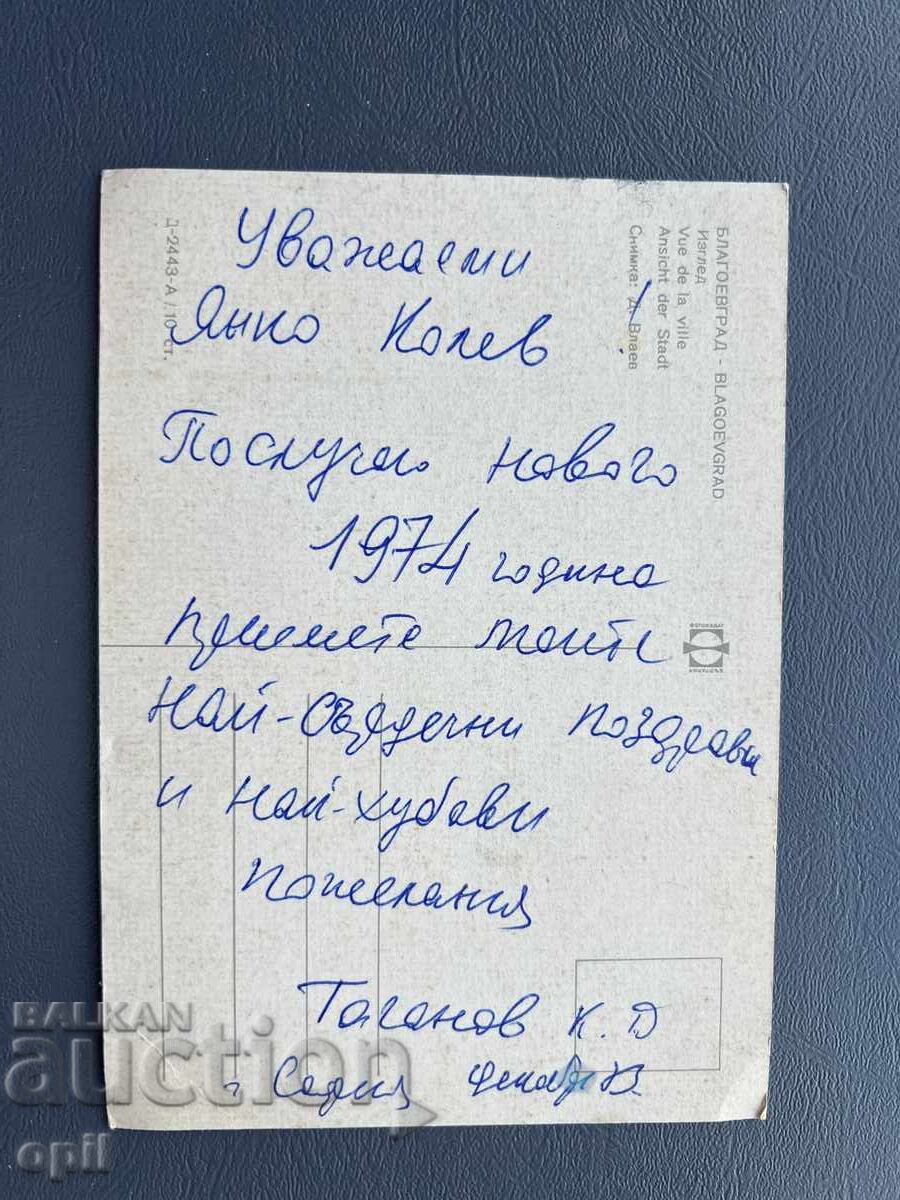 Уважаеми
Янко Колев
По случай новата
1974 година
приемете моите
най-сърдечни поздрави
и най-хубави
пожелания
Таганов К. Д
София декемв. 73.
БЛАГОЕВГРАД - BLAGOEVGRAD
Изглед
Vue de la ville
Ansicht der Stadt
Снимка: Д. Влаев
Д-2443-А / 10 ст.
BALKAN
auction
opil